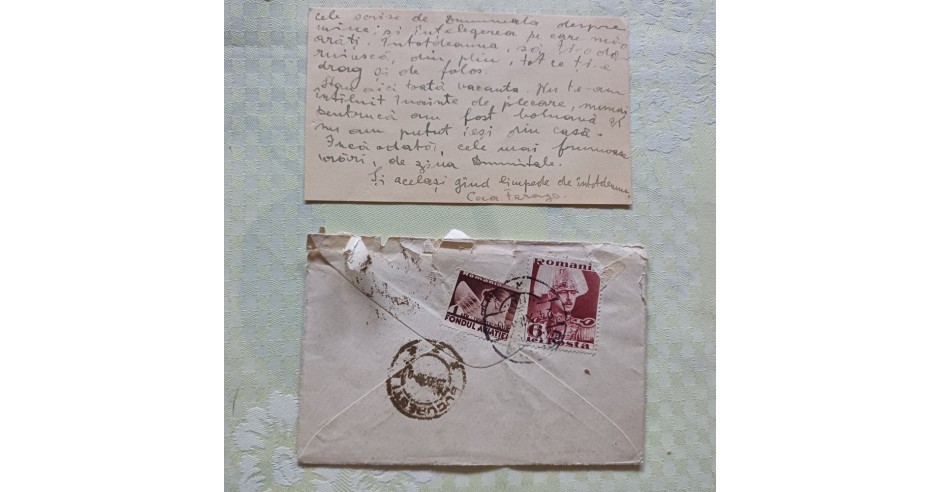 cele scrise de Dumineata despre
mine și înțelegerea pe care mi-o
arăți. Întotdeauna, să ți-o dă-
ruiască, din plin, tot ce ți-e
drag și de folos.
Stau aici toată vacanta. Nu te-am
întîlnit înainte de plecare, numai
pentrucă am fost bolnavă și
nu am putut ieși din casă.
Încăodată, cele mai frumoase
urări, de ziua Dumitale.
Și același gînd limpede de întotdeauna
Coca Farago.
Romania
1
FONDUL AVIAȚIEI
Romania
6
lei Posta
BUCUREȘTI